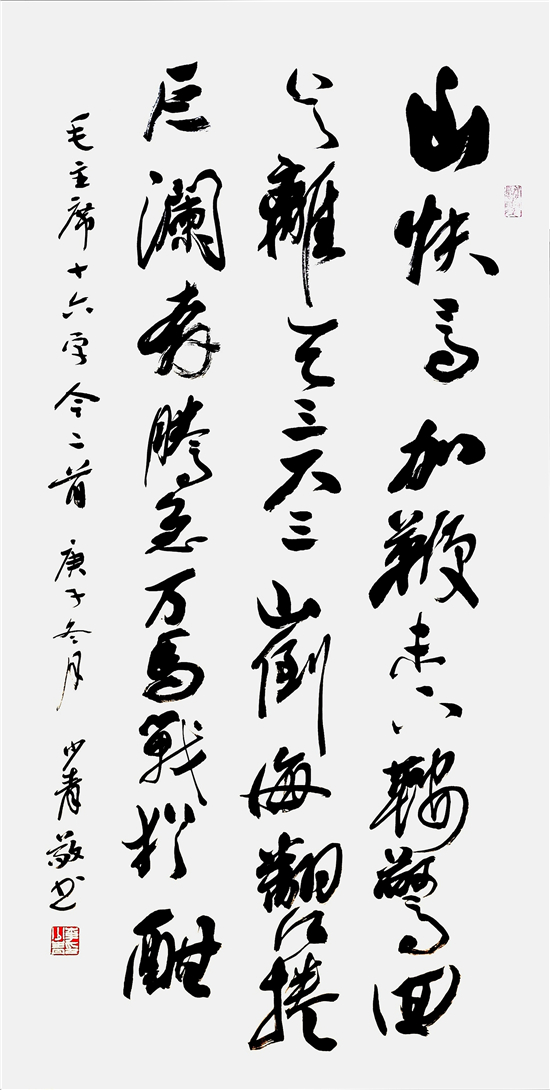 山快馬加鞭未下鞍驚回
首離天三尺三山倒海翻江捲
巨瀾奔騰急万馬戰猶酣
毛主席十六字令二首 庚子冬月 少青敬书